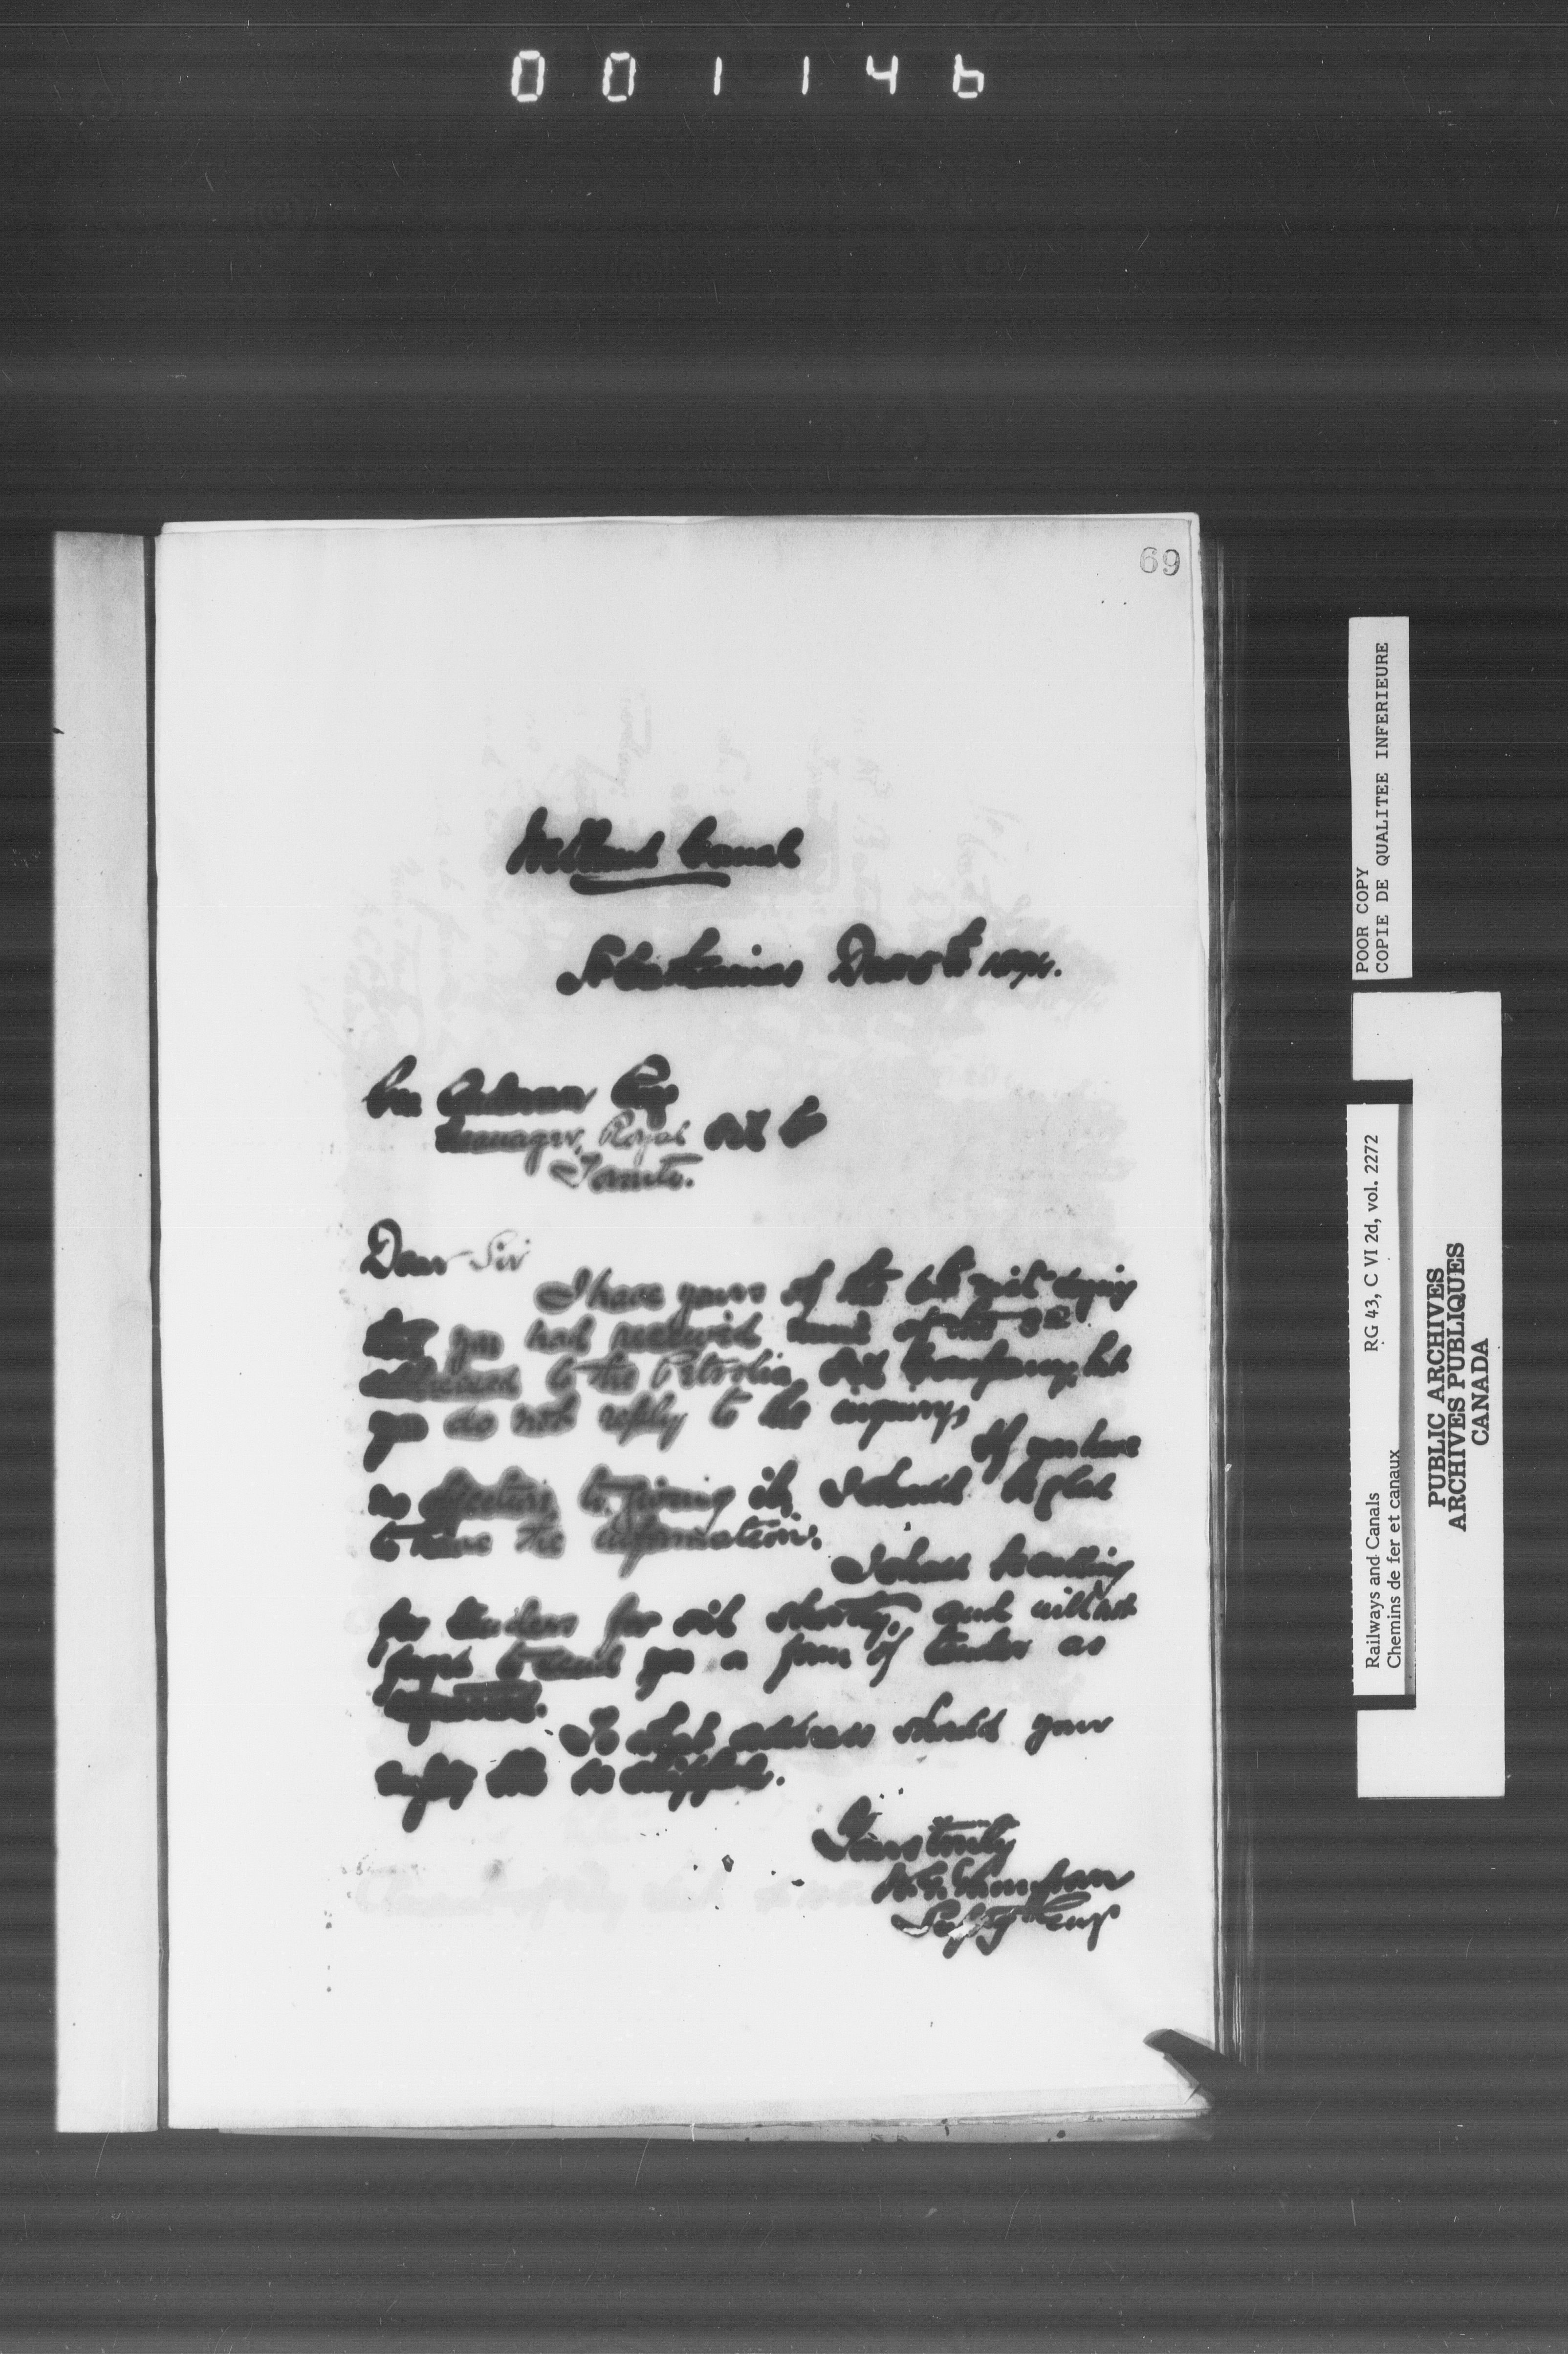 001146
69
Welland Canal
St Catharines Dec 8th 1894.
Esq
Manager, Royal Oil Co
Toronto.
Dear Sir
I have yours of the 6th inst saying
that you had received mine of the 3rd
addressed to the Petrolia Oil Company, but
you do not reply to the inquiry,
If you have
no objection to giving it, I should be glad
to have the information.
I shall be calling
for tenders for oil shortly, and will not
forget to send you a form of tender as
requested.
To what address should your
empty be shipped.
Yours truly
W.G. Thompson
Supt g Eng
POOR COPY
COPIE DE QUALITEE INFERIEURE
Railways and Canals RG 43, C VI 2d, vol. 2272
Chemins de fer et canaux
PUBLIC ARCHIVES
ARCHIVES PUBLIQUES
CANADA